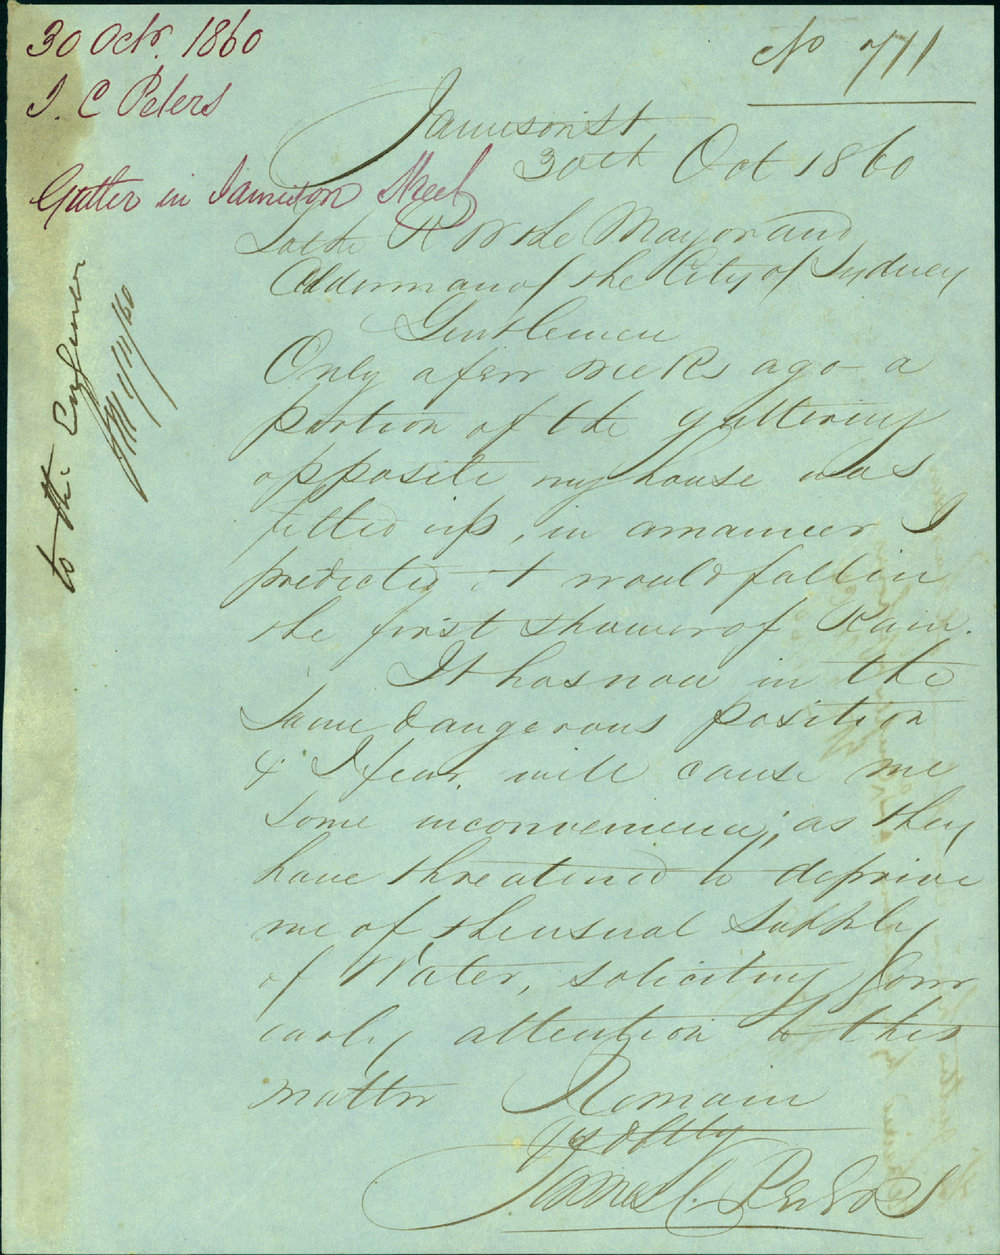 30 Octr. 1860
J. C Peters
Gutter in Jamison Street
No 711
Jamison St
30th Oct 1860
To the R W the Mayor and
Alderman of the City of Sydney
Gentlemen
Only a few weeks ago a
portion of the guttering
opposite my house was
fitted up, in a manner I
predicted it would fall in
the first shower of Rain.
It has now in the
same dangerous position
& I fear, will cause me
some inconvenience, as they
have threatened to deprive
me of the usual supply
of Water, soliciting your
early attention to this
matter Remain
James C. Peters
to the Engineer